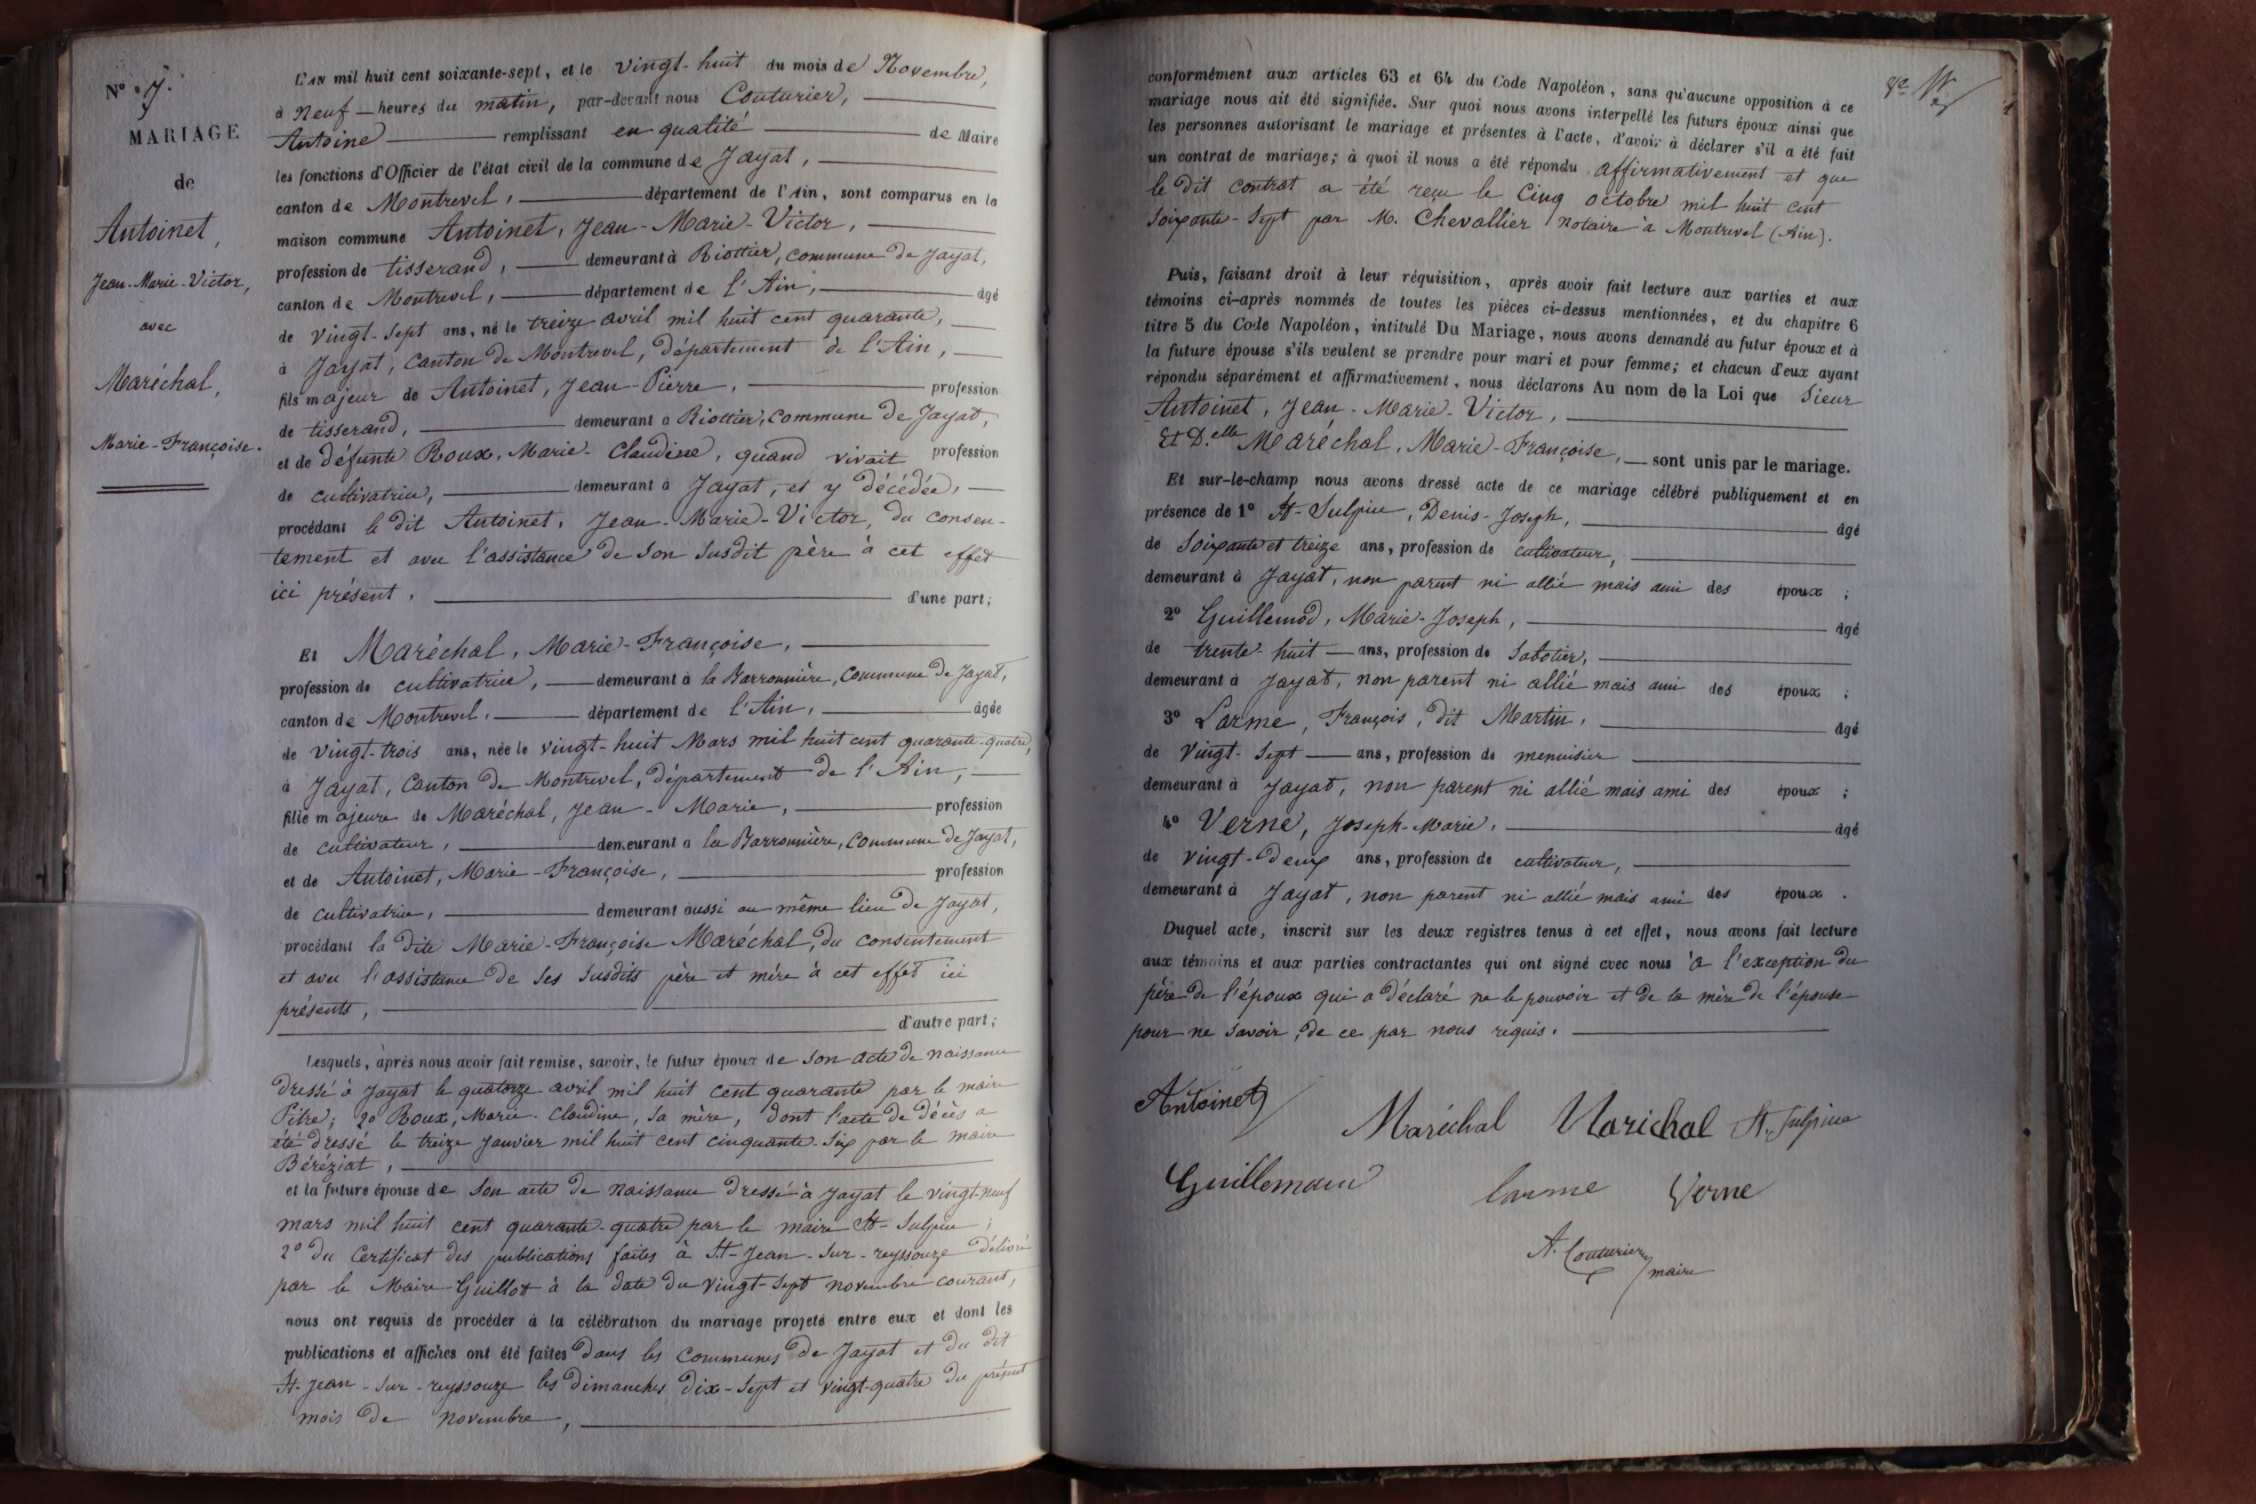 N° 7.
MARIAGE
de
Antoinet,
Jean-Marie-Victor,
avec
Maréchal,
Marie-Françoise.
L'AN mil huit cent soixante-sept, et le vingt-huit du mois de Novembre,
à neuf heures du matin, par-devant nous Couturier,
Antoine remplissant en qualité de Maire
les fonctions d'Officier de l'état civil de la commune de Jayat,
canton de Montrevel, département de l'Ain, sont comparus en la
maison commune Antoinet, Jean-Marie-Victor,
profession de tisserand, demeurant à Riottier, commune de Jayat,
canton de Montrevel, département de l'Ain, âgé
de vingt-sept ans, né le treize avril mil huit cent quarante,
à Jayat, canton de Montrevel, département de l'Ain,
fils majeur de Antoinet, Jean-Pierre, profession
de tisserand, demeurant à Riottier, commune de Jayat,
et de défunte Roux, Marie-Claudine, quand vivait profession
de cultivatrice, demeurant à Jayat, et y décédée,
procédant le dit Antoinet, Jean-Marie-Victor, du consen-
tement et avec l'assistance de son susdit père à cet effet
ici présent. d'une part;
Et Maréchal, Marie-Françoise,
profession de cultivatrice, demeurant à la Barronnière, commune de Jayat,
canton de Montrevel, département de l'Ain, âgée
de vingt-trois ans, née le vingt-huit Mars mil huit cent quarante-quatre,
à Jayat, canton de Montrevel, département de l'Ain,
fille majeure de Maréchal, Jean-Marie, profession
de cultivateur, demeurant à la Barronnière, commune de Jayat,
et de Antoinet, Marie-Françoise, profession
de cultivatrice, demeurant aussi au même lieu de Jayat,
procédant la dite Marie-Françoise Maréchal, du consentement
et avec l'assistance de ses susdits père et mère à cet effet ici
présents,
d'autre part;
Lesquels, après nous avoir fait remise, savoir, le futur époux de son acte de naissance
dressé à Jayat le quatorze avril mil huit cent quarante par le maire
Pitre; 2° Roux, Marie-Claudine, sa mère, dont l'acte de décès a
été dressé le treize Janvier mil huit cent cinquante-six par le maire
Béréziat,
et la future épouse de son acte de naissance dressé à Jayat le vingt-neuf
mars mil huit cent quarante-quatre par le maire St-Sulpice;
2° du Certificat des publications faites à St-Jean-sur-reyssouze délivré
par le Maire Guillot à la date du vingt-sept novembre courant,
nous ont requis de procéder à la célébration du mariage projeté entre eux et dont les
publications et affiches ont été faites dans les communes de Jayat et du dit
St-Jean-sur-reyssouze les dimanches dix-sept et vingt-quatre du présent
mois de novembre,
conformément aux articles 63 et 64 du Code Napoléon, sans qu'aucune opposition à ce
mariage nous ait été signifiée. Sur quoi nous avons interpellé les futurs époux ainsi que
les personnes autorisant le mariage et présentes à l'acte, d'avoir à déclarer s'il a été fait
un contrat de mariage; à quoi il nous a été répondu affirmativement et que
le dit contrat a été reçu le Cinq octobre mil huit cent
soixante-sept par M. Chevallier notaire à Montrevel (Ain).
Puis, faisant droit à leur réquisition, après avoir fait lecture aux parties et aux
témoins ci-après nommés de toutes les pièces ci-dessus mentionnées, et du chapitre 6
titre 5 du Code Napoléon, intitulé Du Mariage, nous avons demandé au futur époux et à
la future épouse s'ils veulent se prendre pour mari et pour femme; et chacun d'eux ayant
répondu séparément et affirmativement, nous déclarons Au nom de la Loi que Sieur
Antoinet, Jean-Marie-Victor,
Et D.elle Maréchal, Marie-Françoise, sont unis par le mariage.
Et sur-le-champ nous avons dressé acte de ce mariage célébré publiquement et en
présence de 1° St-Sulpice, Denis-Joseph, âgé
de soixante et treize ans, profession de cultivateur,
demeurant à Jayat, non parent ni allié mais ami des époux;
2° Guillemod, Marie-Joseph, âgé
de trente-huit ans, profession de sabotier,
demeurant à Jayat, non parent ni allié mais ami des époux;
3° Larme, François, dit Martin, âgé
de vingt-sept ans, profession de menuisier
demeurant à Jayat, non parent ni allié mais ami des époux;
4° Verne, Joseph-Marie, âgé
de vingt-deux ans, profession de cultivateur,
demeurant à Jayat, non parent ni allié mais ami des époux.
Duquel acte, inscrit sur les deux registres tenus à cet effet, nous avons fait lecture
aux témoins et aux parties contractantes qui ont signé avec nous à l'exception du
père de l'époux qui a déclaré ne le pouvoir et de la mère de l'épouse
pour ne savoir, de ce par nous requis.
Antoinet
Maréchal Marichal St. Sulpice
Guillemaud larme Verne
A. Couturier
maire